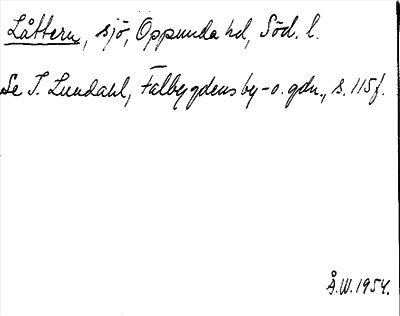 Låttern, sjö, Oppunda hd, Söd. l.
Se I. Lundahl, Falbygdens by-o. gdn., s. 115f.
Å.W. 1954.